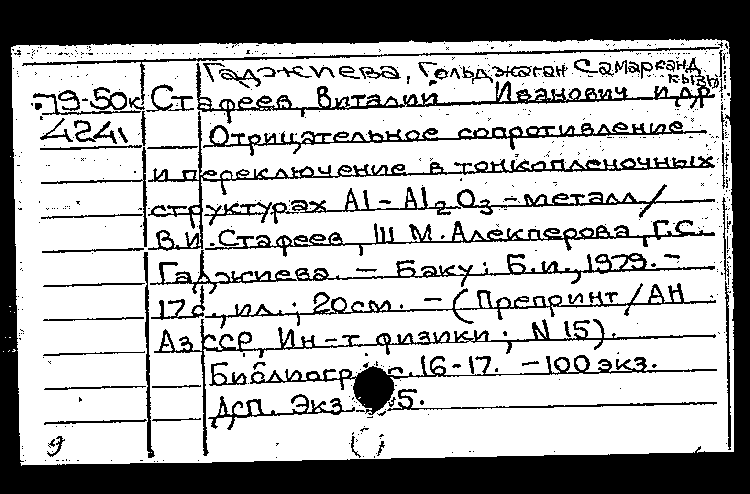 Гаджиева, Гольджаган Самарканд
кызы
79-50к Стафеев, Виталий Иванович и др
4241 Отрицательное сопротивление
и переключение в тонкопленочных
структурах Al - Al₂O₃ - металл /
В.И. Стафеев, Ш М. Алекперова, Г.С.
Гаджиева. - Баку: Б.и., 1979. -
17 с., ил.; 20 см. - (Препринт / АН
АзССР, Ин-т физики; N 15).
Библиогр с. 16-17. - 100 экз.
Дсп. Экз 5.